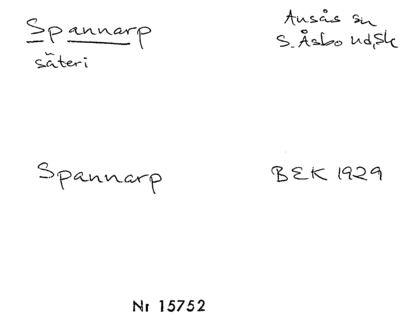 Spannarp
säteri
Ausås sn
S. Åsbo hd, Sk
Spannarp
BEK 1929
Nr 15752